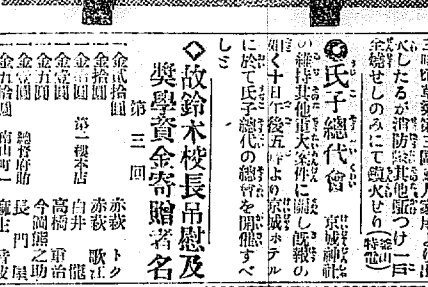 火したるが消防隊其他駈つけ一戸
全燒せしのみにて鎭火せり(釜山特電)
◎氏子總代會 京城神社
の維持其他重大案件に關し既報の
如く十日午後五時より京城ホテル
に於て氏子總代の總會を開催すべ
しと
◇故鈴木校長吊慰及
奬學資金寄贈者名
第三回
金貳拾圓 赤萩 トク
金拾圓 赤萩 歌江
金拾圓 第一樓本店 白井
金壹圓 高橋 重治
金五圓 今滿熊之助
金壹圓 總督府 長門
金五拾圓 南山町一